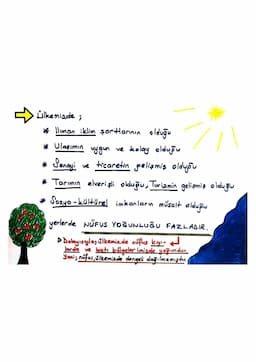 Ülkemizde ;
* Ilıman iklim şartlarının olduğu
* Ulaşımın uygun ve kolay olduğu
* Sanayi ve ticaretin gelişmiş olduğu
* Tarımın elverişli olduğu, Turizmin gelişmiş olduğu
* Sosyo-kültürel imkanların müsait olduğu
yerlerde NÜFUS YOĞUNLUĞU FAZLADIR.
Dolayısıyla; ülkemizde nüfus kıyı-
larda ve batı bölgelerimizde yoğundur.
Yani; nüfus, ülkemizde dengeli dağılmamıştır